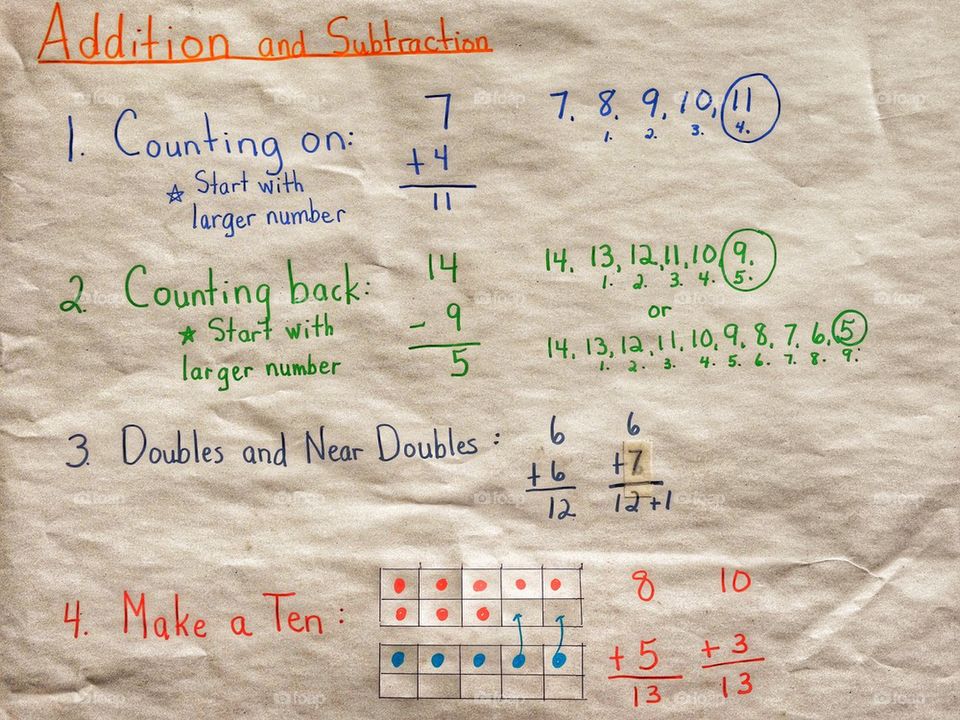 Addition and Subtraction
1. Counting on:
☆ Start with
larger number
7
+ 4
11
7. 8. 9. 10. 11
1. 2. 3. 4.
2. Counting back:
★ Start with
larger number
14
- 9
5
14. 13, 12, 11, 10, 9.
1. 2. 3. 4. 5.
or
14. 13. 12. 11. 10. 9. 8. 7. 6. 5
1. 2. 3. 4. 5. 6. 7. 8. 9.
3. Doubles and Near Doubles:
6
+ 6
12
6
+7
12+1
4. Make a Ten:
8
+ 5
13
10
+ 3
13
foap